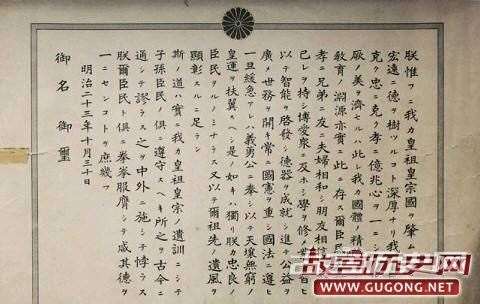 朕惟フニ我カ皇祖皇宗國ヲ肇ム
宏遠ニ德ヲ樹ツルコト深厚ナリ我
克ク忠ニ克ク孝ニ億兆心ヲ一ニシ
厥ノ美ヲ濟セルハ此レ我カ國體ノ精
教育ノ淵源亦實ニ此ニ存ス爾臣民
孝ニ兄弟ニ友ニ夫婦相和シ朋友相信
己レヲ持シ博愛衆ニ及ホシ學ヲ修メ業ヲ習ヒ
以テ智能ヲ啓發シ德器ヲ成就シ進テ公益ヲ
廣メ世務ヲ開キ常ニ國憲ヲ重シ國法ニ遵ヒ
一旦緩急アレハ義勇公ニ奉シ以テ天壤無窮ノ
皇運ヲ扶翼スヘシ是ノ如キハ獨リ朕カ忠良ノ
臣民タルノミナラス又以テ爾祖先ノ遺風ヲ
顯彰スルニ足ラン
斯ノ道ハ實ニ我カ皇祖皇宗ノ遺訓ニシテ
子孫臣民ノ俱ニ遵守スヘキ所之ヲ古今ニ
通シテ謬ラス之ヲ中外ニ施シテ悖ラス
朕爾臣民ト俱ニ拳拳服膺シテ咸其德ヲ
一ニセンコトヲ庶幾フ
明治二十三年十月三十日
御名御璽
故宫历史网
www.GUGONG.NET